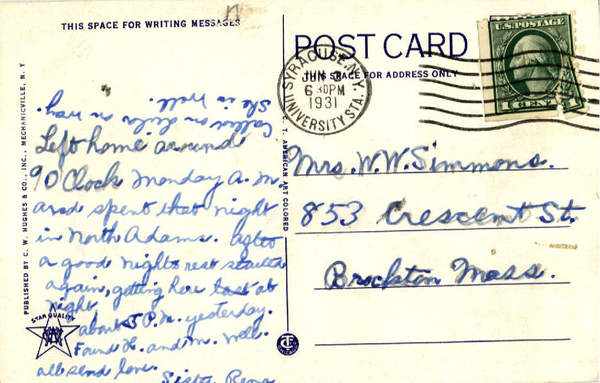 THIS SPACE FOR WRITING MESSAGES
POST CARD
THIS SPACE FOR ADDRESS ONLY
SYRACUSE, N.Y.
JUN
6 30PM
1931
UNIVERSITY STA.
U.S. POSTAGE
1 CENT 1
Called on Lula on way.
She is well.
Left home around
9 O Clock Monday A.M.
and spent that night
in North Adams. After
a good nights rest started
again, getting here last at
night
about 5 P.M. yesterday.
Found H. and M. well.
all send love.
Sister Rena
Mrs. W. W. Simmons.
853 Crescent St.
Brockton Mass.
PUBLISHED BY C. W. HUGHES & CO., INC., MECHANICVILLE, N. Y.
C. T. AMERICAN ART COLORED
STAR QUALITY